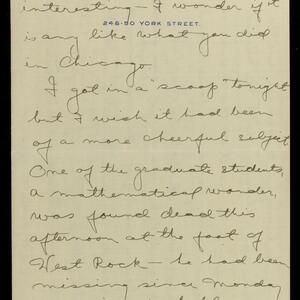 interesting - I wonder if it
246-50 YORK STREET.
is any like what you did
in Chicago.
I got in a "scoop" tonight
but I wish it had been
of a more cheerful subject.
One of the graduate students,
a mathematical wonder,
was found dead this
afternoon at the foot of
West Rock - he had been
missing since Monday